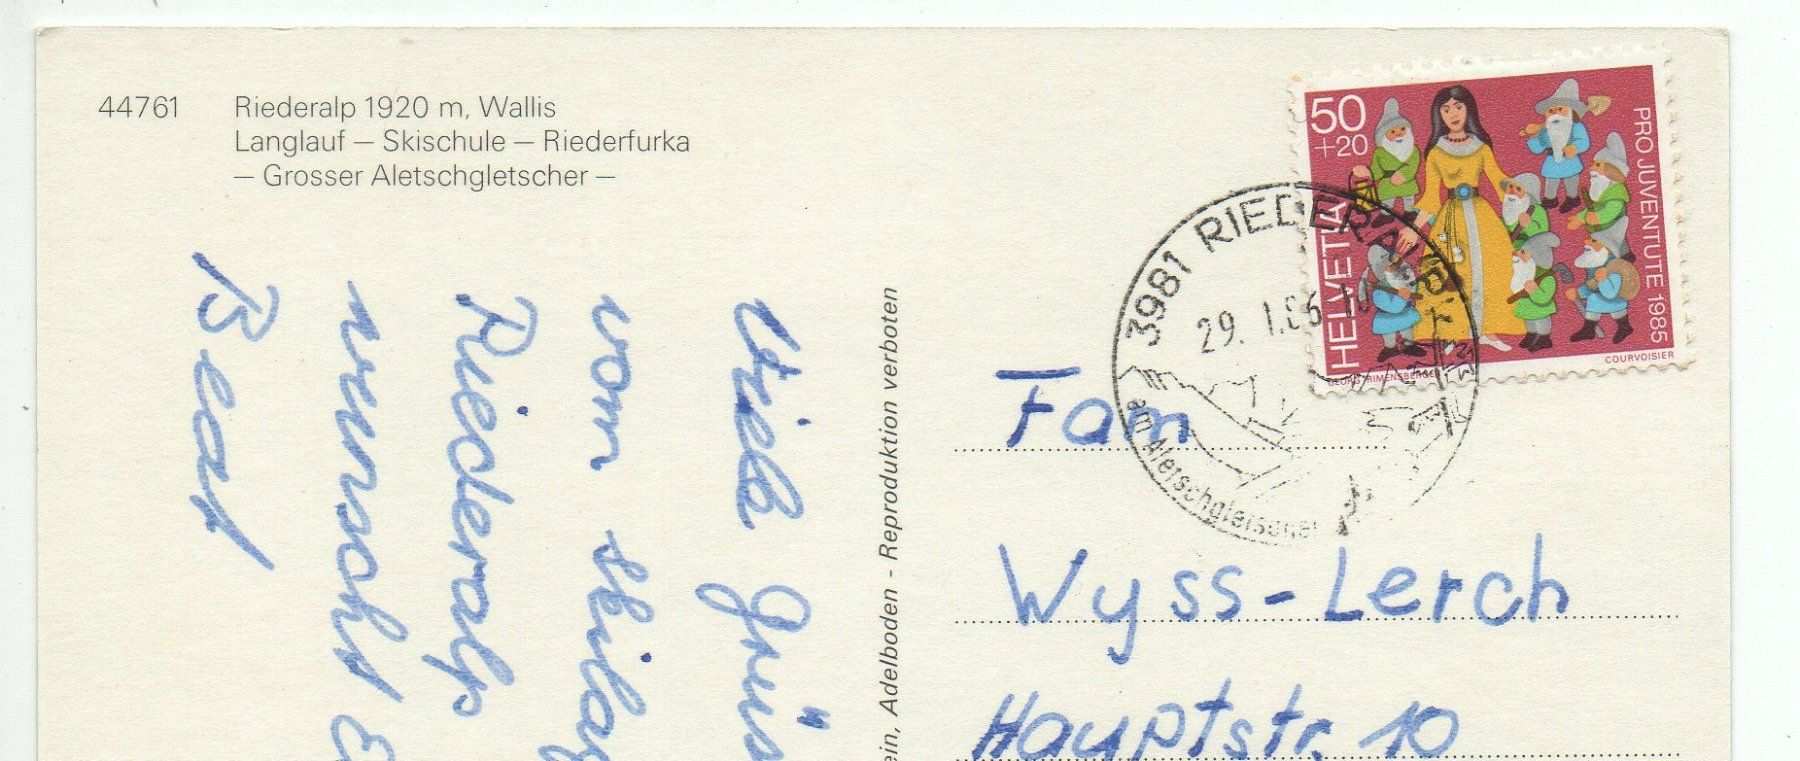 44761 Riederalp 1920 m, Wallis
Langlauf — Skischule — Riederfurka
— Grosser Aletschgletscher —
50
+20
HELVETIA
PRO JUVENTUTE 1985
COURVOISIER
3981 RIEDERALP
29. 1.86
am Aletschgletscher
Viele Grüs
vom Skilag
Riederalp
wünscht E
Beat
ein, Adelboden - Reproduktion verboten
Fam
Wyss-Lerch
Hauptstr. 10